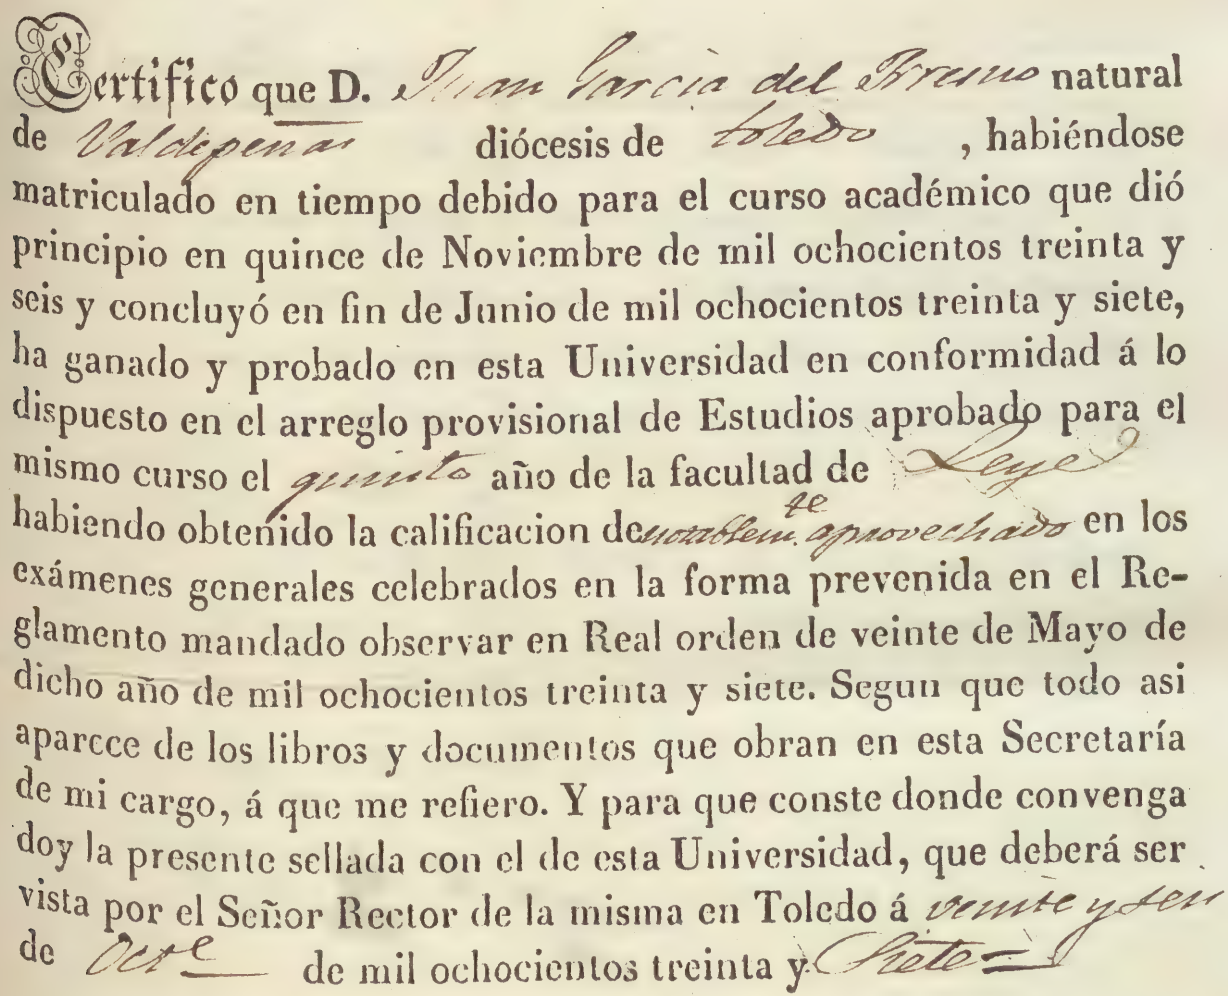 Certifico que D. Juan Garcia del Bresno natural
de Valdepeñas diócesis de toledo , habiéndose
matriculado en tiempo debido para el curso académico que dió
principio en quince de Noviembre de mil ochocientos treinta y
seis y concluyó en fin de Junio de mil ochocientos treinta y siete,
ha ganado y probado en esta Universidad en conformidad á lo
dispuesto en el arreglo provisional de Estudios aprobado para el
mismo curso el quinto año de la facultad de Leyes
habiendo obtenido la calificacion de notablem.te aprovechado en los
exámenes generales celebrados en la forma prevenida en el Re-
glamento mandado observar en Real orden de veinte de Mayo de
dicho año de mil ochocientos treinta y siete. Segun que todo asi
aparece de los libros y documentos que obran en esta Secretaría
de mi cargo, á que me refiero. Y para que conste donde convenga
doy la presente sellada con el de esta Universidad, que deberá ser
vista por el Señor Rector de la misma en Toledo á veinte y seis
de Octe de mil ochocientos treinta y Siete=